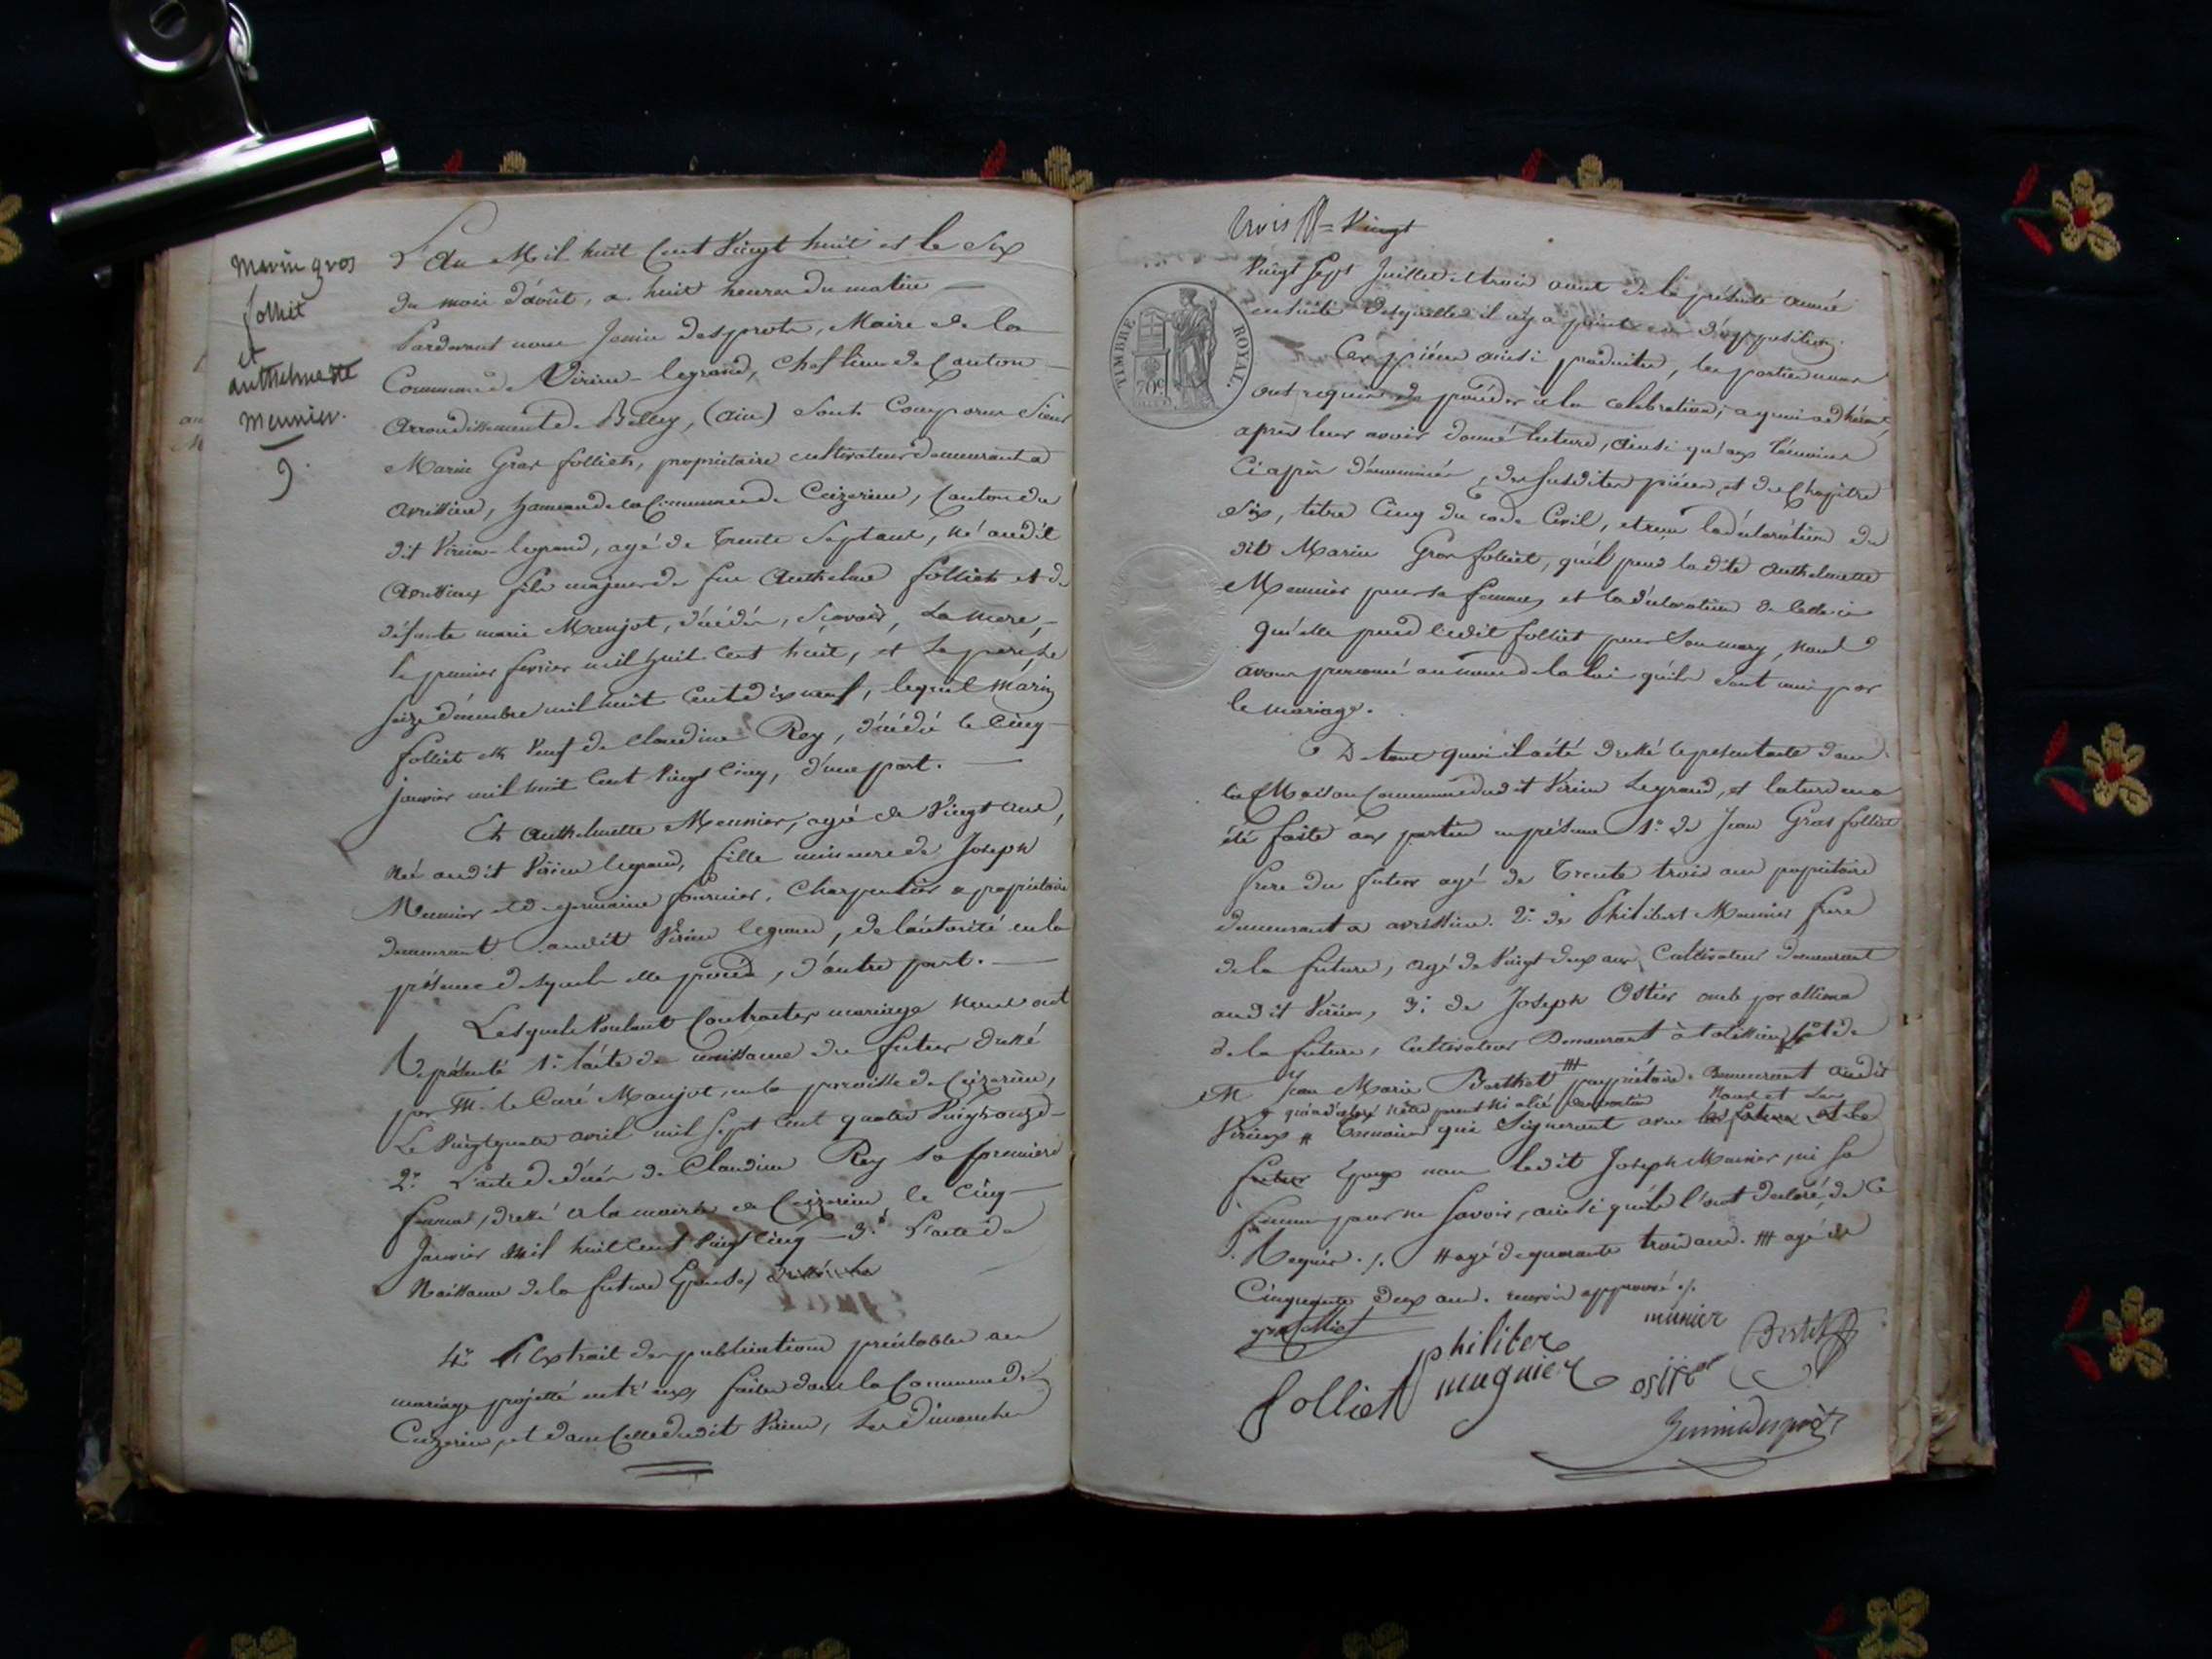 Marin gros
folliet
et
anthelmette
meunier.
9.
L'An Mil huit Cent Vingt huit et le Six
du mois d'août, a huit heures du matin
Pardevant nous Jenin desprots, Maire de la
Commune de Virieu-legrand, chef lieu de Canton
Arrondissement de Belley, (Ain) sont Comparus Sieur
Marin Gros folliet, propriétaire cultivateur demeurant a
avrissieu, hameau de la Commune de Ceizerieu, Canton du
dit Virieu-legrand, agé de Trente Sept ans, né audit
avrissieux fils majeur de feu Anthelme folliet et de
défunte marie Manjot, décédés, Scavoir, La mere,
le premier fevrier mil huit cent huit, et le pere, le
seize décembre mil huit Cent dix neuf, lequel marin
folliet est Veuf de Claudine Rey, décédé le Cinq
janvier mil huit Cent Vingt Cinq, d'une part.
Et anthelmette Meunier, agée de Vingt ans,
née audit Virieu legrand, fille mineure de Joseph
Meunier et de germaine fournier, Charpentier & propriétaire
demeurant audit Virieu legrand, de l'autorité en la
présence desquels elle procède, d'autre part.
Lesquels Voulant Contracter mariage nous ont
représenté 1.° l'acte de naissance du futur dressé
par M. le Curé Manjot, en la paroisse de Ceizerieu,
Le Vingt quatre avril mil sept Cent quatre Vingt onze
2.° L'acte de décès de Claudine Rey sa première
femme, dressé a la mairie de Ceizerieu le Cinq
Janvier Mil huit Cent Vingt Cinq 3.° L'acte de
Naissance de la future Epouse,
4.° l'Extrait des publications préalables au
mariage projetté entr'eux, faites dans la Commune de
Ceizerieu, et dans Celle dudit Virieu, les Dimanches
trois Vingt
Vingt Sept Juillet et trois aout de la présente année
ensuite desquelles il n'y a point eu d'opposition.
Ces pièces ainsi produites, les parties nous
ont requis de procéder à la célébration; a quoi adhérant,
après leur avoir donné lecture, ainsi qu'aux témoins
Ci après dénommés, des susdites pièces, et du Chapitre
Six, titre Cinq du code Civil, et reçu la déclaration du
dit Marin Gros folliet, qu'il prend ladite anthelmette
Meunier pour sa femme, et la déclaration de Celle-ci
qu'elle prend ledit folliet pour Son mary, nous
avons prononcé au nom de la loi qu'ils sont unis par
le mariage.
De tout quoi il a été dressé le présent acte dans
la Maison Commune dudit Virieu Legrand, et lecture en a
été faite aux parties en présence 1.° de Jean Gros folliet
frere du futur agé de Trente trois ans propriétaire
demeurant a avrissieu. 2.° de Philibert Meunier frere
de la future, agé de Vingt deux ans, Cultivateur demeurant
audit Virieu, 3.° de Joseph Ostier oncle par alliance
de la future, Cultivateur Demeurant à # et de
M Jean Marie Berthet ### propriétaire Demeurant audit
qui a déclaré n'être parent ni alié des parties Nous et Les
Virieux # Temoins qui Signeront avec la future et le
futur Epoux non ledit Joseph Meunier, ni sa
femme pour ne savoir, ainsi qu'ils l'ont déclaré, de Ce
Requis. /. # agé de quarante trois ans. ### agé de
Cinquante deux ans. renvois approuvé /.
munier
philiber
mugnier
ostier
folliet
Jenin desprots